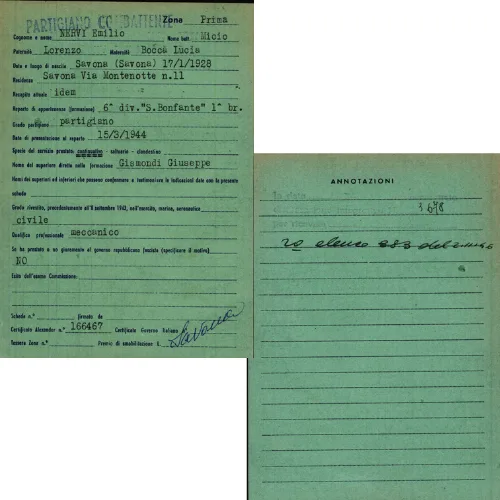 PARTIGIANO COMBATTENTE
Zona Prima
Cognome e nome NERVI Emilio Nome batt. Micio
Paternità Lorenzo Maternità Bocca Lucia
Data e luogo di nascita Savona (Savona) 17/1/1928
Residenza Savona Via Montenotte n.11
Recapito attuale idem
Reparto di appartenenza (formazione) 6^ div."S.Bonfante" 1^ br.
Grado partigiano partigiano
Data di presentazione al reparto 15/3/1944
Specie del servizio prestato: continuativo - saltuario - clandestino
Nome del superiore diretto nella formazione Gismondi Giuseppe
Nomi dei superiori ed inferiori che possono confermare e testimoniare le indicazioni date con la presente
scheda
Grado rivestito, precedentemente all'8 settembre 1943, nell'esercito, marina, aeronautica
civile
Qualifica professionale meccanico
Se ha prestato o no giuramento al governo repubblicano fascista (specificare il motivo)
NO
Esito dell'esame Commissione:
Scheda n.° firmata da
Certificato Alexander n.° 166467 Certificato Governo Italiano
Tessera Zona n.° Premio di smobilitazione L.
Savona
ANNOTAZIONI
In data
2° elenco 283 del